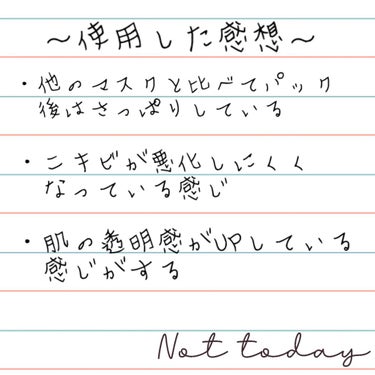 ～使用した感想～
・他のマスクと比べてパック
後はさっぱりしている
・ニキビが悪化しにくく
なっている感じ
・肌の透明感がUPしている
感じがする
Not today